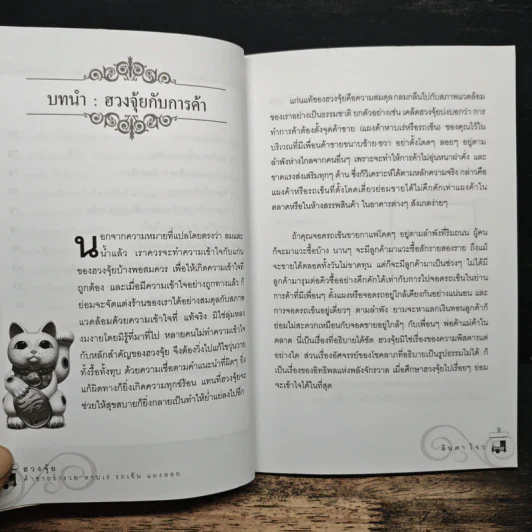 บทนำ : ฮวงจุ้ยกับการค้า
นอกจากความหมายที่แปลโดยตรงว่า ลมและ
น้ำแล้ว เราควรจะทำความเข้าใจกับแก่น
ของฮวงจุ้ยบ้างพอสมควร เพื่อให้เกิดความเข้าใจที่
ถูกต้อง และเมื่อมีความเข้าใจอย่างถูกทางแล้ว ก็
ย่อมจะจัดแต่งร้านของเราได้อย่างสมดุลกับสภาพ
แวดล้อมด้วยความเข้าใจที่ แท้จริง มิใช่ลุ่มหลง
งมงายโดยมิรู้ที่มาที่ไป หลายคนไม่ทำความเข้าใจ
กับหลักสำคัญของฮวงจุ้ย จึงต้องวิ่งไปแก้ไขวุ่นวาย
ทั้งรื้อทั้งทุบ ด้วยความเชื่อตามคำแนะนำที่ผิดๆ ยิ่ง
แก้ผิดทางก็ยิ่งเกิดความทุกข์ร้อน แทนที่ฮวงจุ้ยจะ
ช่วยให้สุขสบายก็ยิ่งกลายเป็นทำให้ย่ำแย่ลงไปอีก
ฮวงจุ้ย
ค้าขายร่ำรวย หาบเร่ รถเข็น แผงลอย
แก่นแท้ของฮวงจุ้ยคือความสมดุล กลมกลืนไปกับสภาพแวดล้อม
ของเราอย่างเป็นธรรมชาติ ยกตัวอย่างเช่น เคล็ดฮวงจุ้ยบ่งบอกว่า การ
ทำการค้าต้องตั้งจุดค้าขาย (แผงค้าหาบเร่หรือรถเข็น) ของคุณไว้ใน
บริเวณที่มีเพื่อนค้าขายขนาบซ้าย-ขวา อย่าตั้งโดดๆ ลอยๆ อยู่ตาม
ลำพังห่างไกลจากคนอื่นๆ เพราะจะทำให้การค้าไม่อุ่นหนาฝาคั่ง และ
ขาดแรงส่งเสริมทุกๆ ด้าน ซึ่งก็วิเคราะห์ได้ตามหลักความจริง กล่าวคือ
แผงค้าหรือรถเข็นที่ตั้งโดดเดี่ยวย่อมขายได้ไม่คึกคักเท่าแผงค้าใน
ตลาดหรือในห้างสรรพสินค้า ในอาคารต่างๆ สังเกตง่ายๆ
ถ้าคุณจอดรถเข็นขายกาแฟโดดๆ อยู่ตามลำพังที่ริมถนน ผู้คน
ก็จะมาแวะซื้อบ้าง นานๆ จะมีลูกค้ามาแวะซื้อสักรายสองราย ถึงแม้
จะขายได้ตลอดทั้งวันไม่ขาดทุน แต่ก็จะมีลูกค้ามาเป็นช่วงๆ ไม่ได้มี
ลูกค้ามารุมต่อคิวซื้ออย่างคึกคักได้เท่ากับการไปจอดรถเข็นในย่าน
การค้าที่มีเพื่อนๆ ตั้งแผงหรือจอดรถอยู่ใกล้เคียงกันอย่างแน่นอน และ
การจอดรถเข็นอยู่เดี่ยวๆ ตามลำพัง ยามจะหาแลกเงินทอนลูกค้าก็
ย่อมไม่สะดวกเหมือนกับจอดขายอยู่ใกล้ๆ กับเพื่อนๆ พ่อค้าแม่ค้าใน
ตลาด นี่เป็นเรื่องที่อธิบายได้ชัด ฮวงจุ้ยมิใช่เรื่องของความพิสดารแต่
อย่างใด ส่วนเรื่องอัศจรรย์ของโชคลาภที่อธิบายเป็นรูปธรรมไม่ได้ ก็
เป็นเรื่องของอิทธิพลแห่งพลังจักรวาล เมื่อศึกษาฮวงจุ้ยไปเรื่อยๆ ย่อม
จะเข้าใจได้ในที่สุด